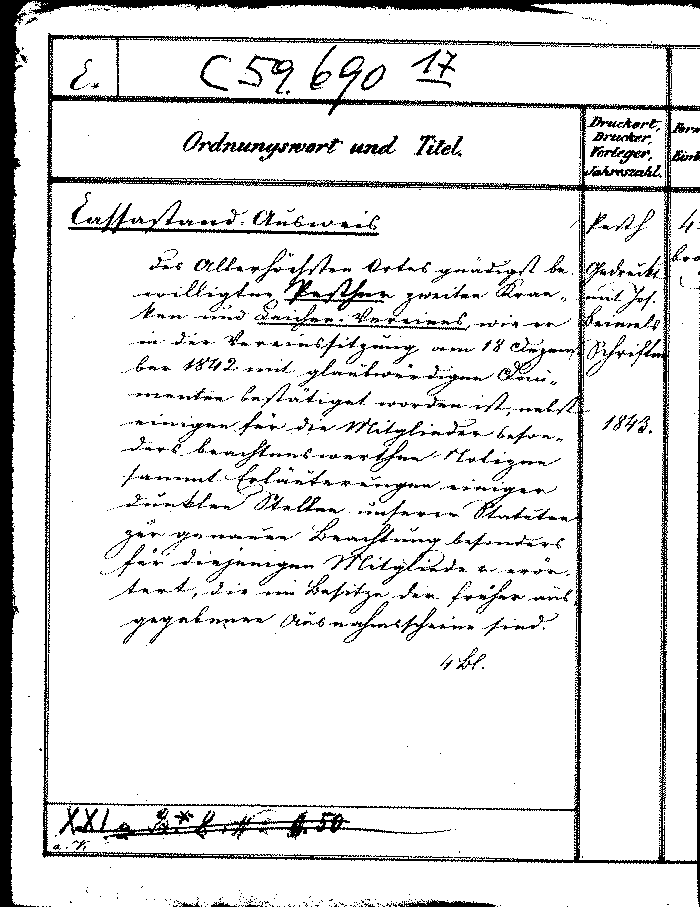 C.
C 59.690 17
Ordnungswort und Titel.
Druckort,
Drucker,
Verleger,
Jahreszahl.
Cassastand-Ausweis
des Allerhöchsten Ortes gnädigst be-
willigten Pesther zweiten Kran-
ken und Leichen-Vereines, wie er
in der Vereinssitzung am 18 Dezem-
ber 1842 mit glaubwürdigen Docu-
menten bestätiget worden ist, nebst
einigen für die Mitglieder beson-
ders beachtenswerthen Notizen
sammt Erläuterungen einiger
dunklen Stellen unserer Statuten
zur genauen Beachtung besonders
für diejenigen Mitglieder erör-
tert, die im Besitze der früher aus-
gegebenen Ausnahmsscheine sind.
4 Bl.
Pesth
Gedruckt
mit Jos.
Beimels
Schriften
1843.
XXI
a. V.